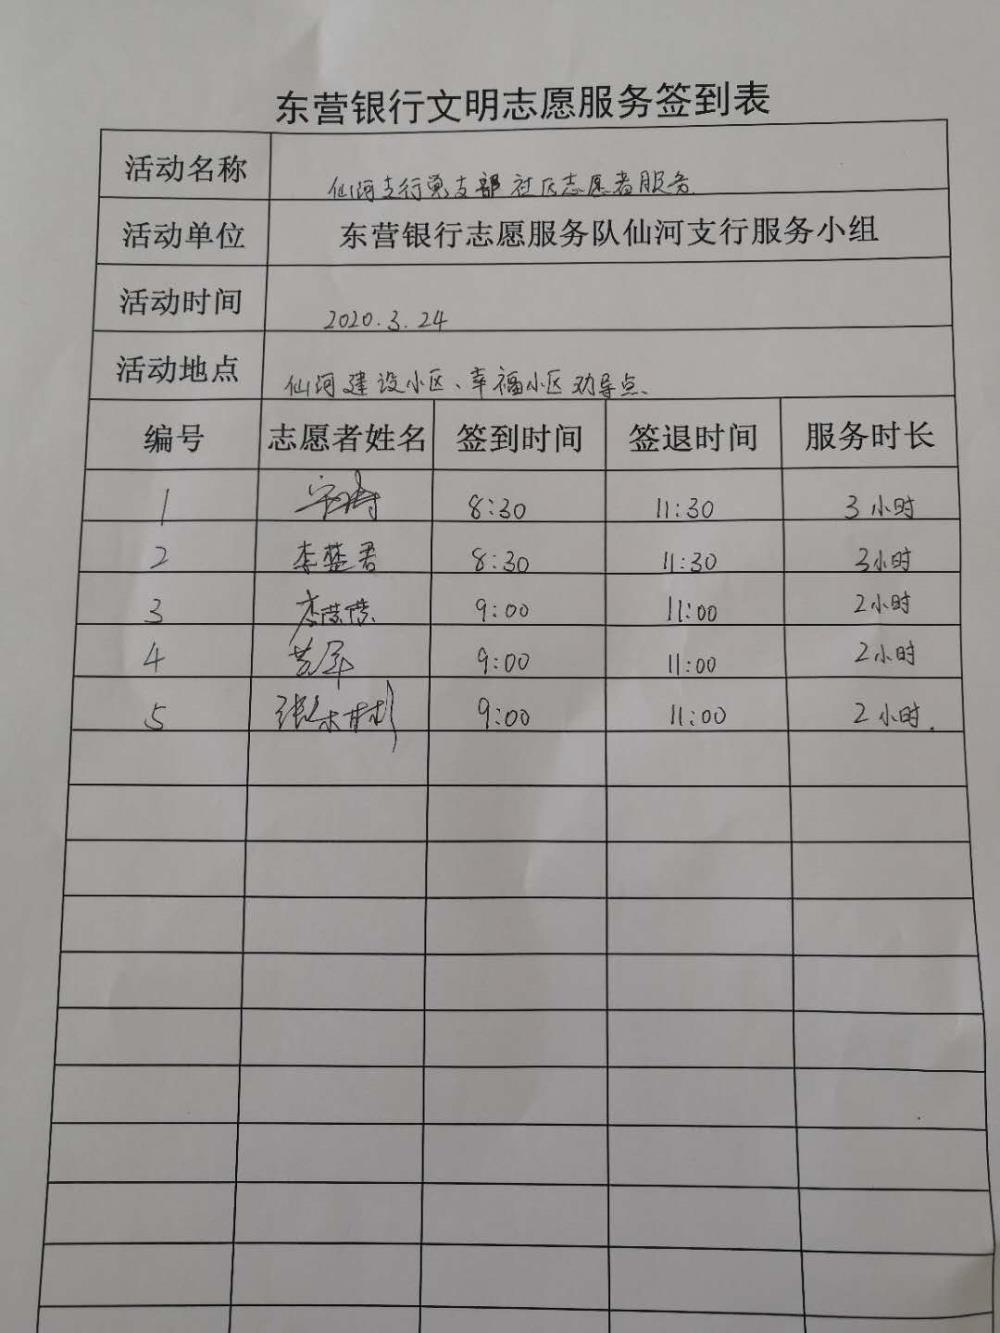 东营银行文明志愿服务签到表
活动名称 仙河支行党支部社区志愿者服务
活动单位 东营银行志愿服务队仙河支行服务小组
活动时间 2020.3.24
活动地点 仙河建设小区、幸福小区劝导点、
编号 志愿者姓名 签到时间 签退时间 服务时长
1 8:30 11:30 3小时
2 李楚君 8:30 11:30 3小时
3 9:00 11:00 2小时
4 9:00 11:00 2小时
5 9:00 11:00 2小时.